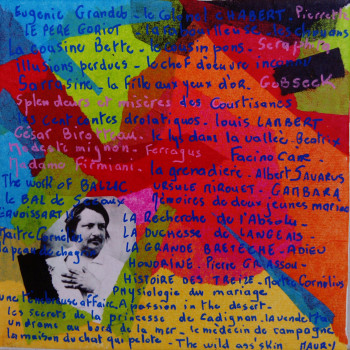 Eugenie Grandet - le Colonel CHABERT - Pierrette
LE PERE GORIOT - la rabouilleuse - les chouans
La cousine Bette - le cousin pons - Seraphita
Illusions perdues - le chef d'oeuvre inconnu
Sarrasine - la fille aux yeux d'or - GOBSECK
Splendeurs et misères des Courtisanes
les cent contes drolatiques - louis LAMBERT
César Birotteau - le lys dans la vallée - Beatrix
Modeste mignon - Ferragus Facino Cane
Madame Firmiani - la grenadière - Albert SAVARUS
The work of BALZAC URSULE MIROUET - GAMBARA
le BAL de Sceaux Mémoires de deux jeunes mariées
La Recherche de l'Absolu
Maitre Cornelius LA DUCHESSE de LANGEAIS
la peau de chagrin LA GRANDE BRETECHE - ADIEU
HONORINE - Pierre GRASSOU
HISTOIRE DES TREIZE - Maitre Cornélius
PHysiologie du mariage
une tenebreuse affaire - A passion in the desert -
les secrets de la princesse de Cadignan - la vendetta
un drame au bord de la mer - le médecin de campagne
la maison du chat qui pelote - The wild ass' skin MAURY